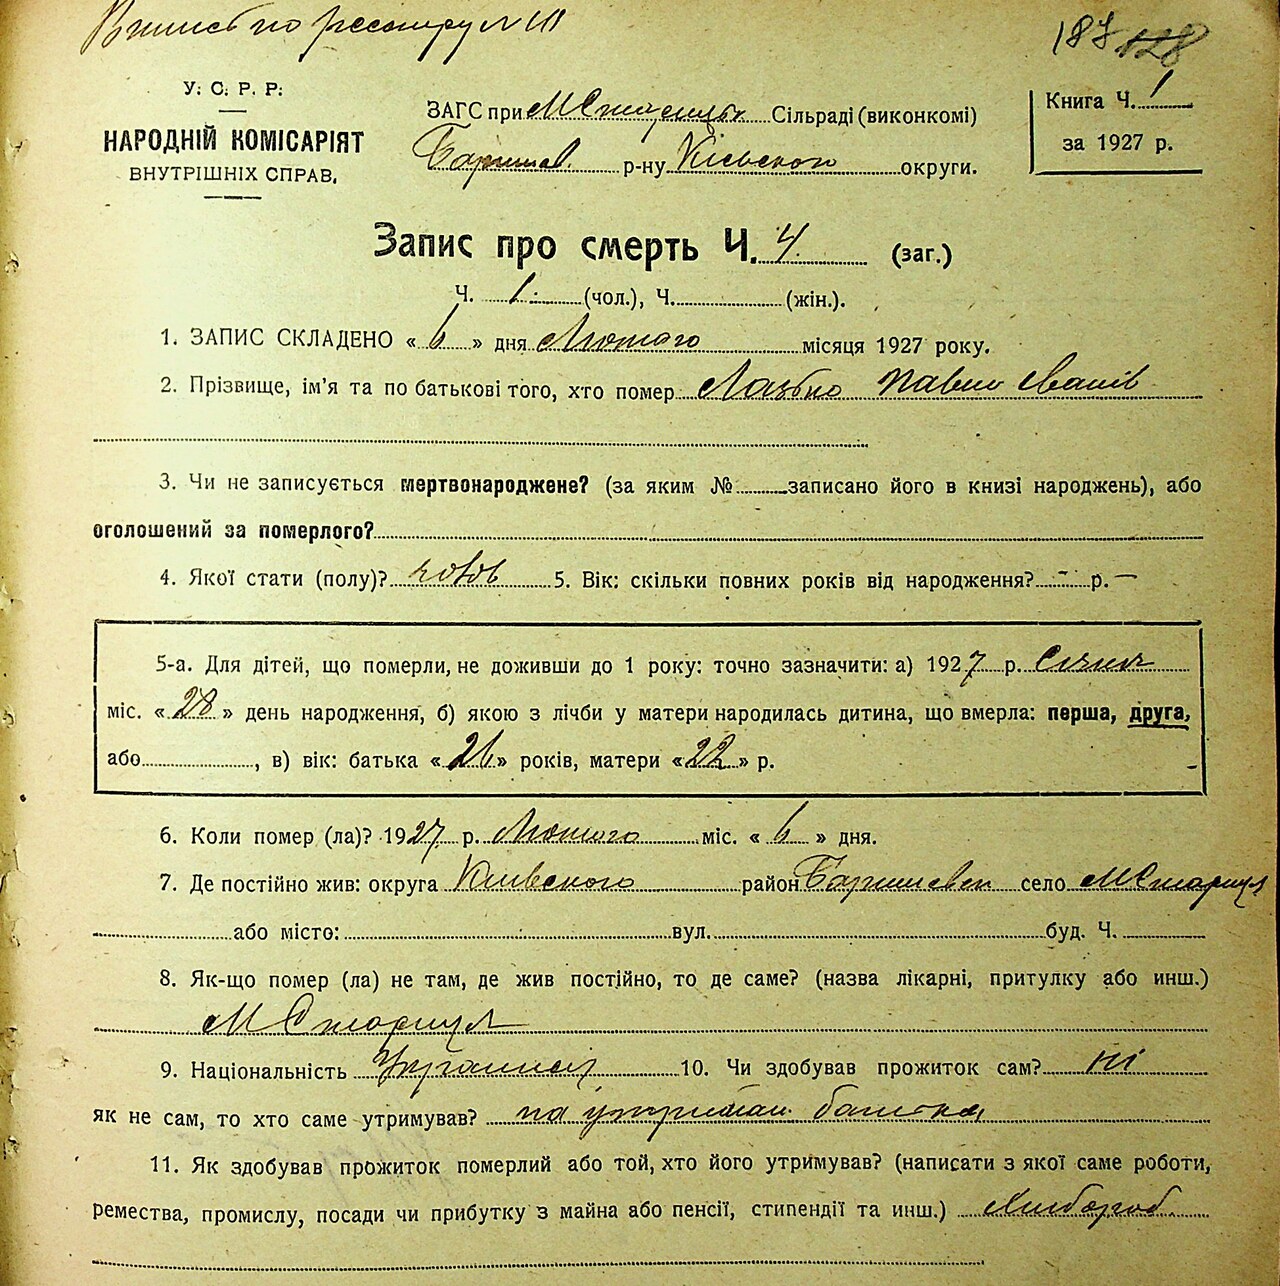 187 128
У. С. Р. Р.
НАРОДНІЙ КОМІСАРІЯТ
ВНУТРІШНІХ СПРАВ.
ЗАГС при Сільраді (виконкомі)
Баришев. р-ну Київского округи.
Книга Ч. 1
за 1927 р.
Запис про смерть Ч. 4. (заг.)
Ч. 1. (чол.), Ч. (жін.).
1. ЗАПИС СКЛАДЕНО « 6 » дня Лютого місяця 1927 року.
2. Прізвище, ім'я та по батькові того, хто помер Павло Іванів
3. Чи не записується мертвонароджене? (за яким № записано його в книзі народжень), або
оголошений за померлого?
4. Якої стати (полу)? чолов 5. Вік: скільки повних років від народження? - р. -
5-а. Для дітей, що померли, не доживши до 1 року: точно зазначити: а) 1927 р. Січня
міс. « 28 » день народження, б) якою з лічби у матери народилась дитина, що вмерла: перша, друга,
або , в) вік: батька « 26 » років, матери « 22 » р.
6. Коли помер (ла)? 1927 р. Лютого міс. « 6 » дня.
7. Де постійно жив: округа Київского район Баришевск село М Стариця
або місто: вул. буд. Ч.
8. Як-що помер (ла) не там, де жив постійно, то де саме? (назва лікарні, притулку або инш.)
М Стариця
9. Національність 10. Чи здобував прожиток сам? ні
як не сам, то хто саме утримував? на утриман. батька
11. Як здобував прожиток померлий або той, хто його утримував? (написати з якої саме роботи,
ремества, промислу, посади чи прибутку з майна або пенсії, стипендії та инш.) Хлібороб.